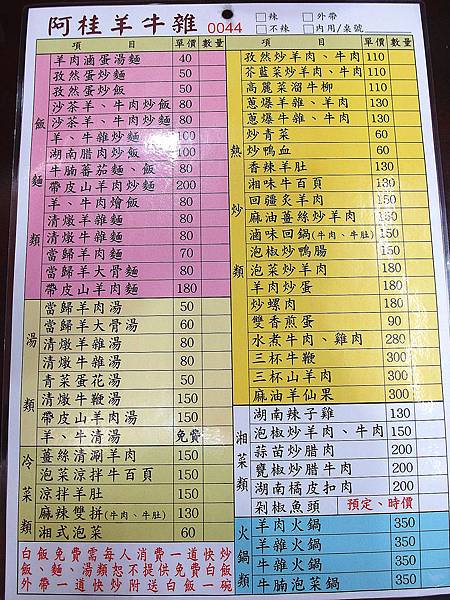 阿桂羊牛雜 0044 □辣 □外帶
□不辣 □內用/桌號
項 目 單價 數量
飯麵類
羊肉滷蛋湯麵 40
孜然蛋炒麵 50
孜然蛋炒飯 50
沙茶羊、牛肉炒飯 80
沙茶羊、牛肉炒麵 80
羊、牛雜炒麵 100
湖南腊肉炒飯 100
牛腩蕃茄麵、飯 80
帶皮山羊肉炒麵 200
羊、牛肉燴飯 80
清燉羊雜麵 80
清燉牛雜麵 80
當歸羊肉麵 70
當歸羊大骨麵 80
帶皮山羊肉麵 180
湯類
當歸羊肉湯 50
當歸羊大骨湯 60
清燉羊雜湯 80
清燉牛雜湯 80
青菜蛋花湯 50
清燉牛鞭湯 150
帶皮山羊肉湯 150
羊、牛清湯 免費
冷菜類
薑絲清涮羊肉 150
泡菜涼拌牛百頁 150
涼拌羊肚 150
麻辣雙拼(牛肉、牛肚) 130
湘式泡菜 60
白飯免費需每人消費一道快炒
飯、麵、湯類恕不提供免費白飯
外帶一道快炒附送白飯一碗
項 目 單價 數量
熱炒類
孜然炒羊肉、牛肉 110
芥藍菜炒羊肉、牛肉 110
高麗菜溜牛柳 110
蔥爆羊雜、羊肉 130
蔥爆牛雜、牛肉 130
炒青菜 60
炒鴨血 60
香辣羊肚 150
湘味牛百頁 130
回疆灸羊肉 150
麻油薑絲炒羊肉 150
滷味回鍋(牛肉、牛肚) 150
泡椒炒鴨腸 150
泡菜炒羊肉 150
羊肉炒蛋 180
炒螺肉 180
雙香煎蛋 90
水煮牛肉、雞肉 280
三杯牛鞭 300
三杯山羊肉 300
麻油羊仙果 300
湘菜類
湖南辣子雞 130
泡椒炒羊肉、牛肉 150
蒜苗炒腊肉 200
甕椒炒腊牛肉 200
湖南橘皮扣肉 200
剁椒魚頭 預定、時價
火鍋類
羊肉火鍋 350
羊雜火鍋 350
牛雜火鍋 350
牛腩泡菜鍋 350